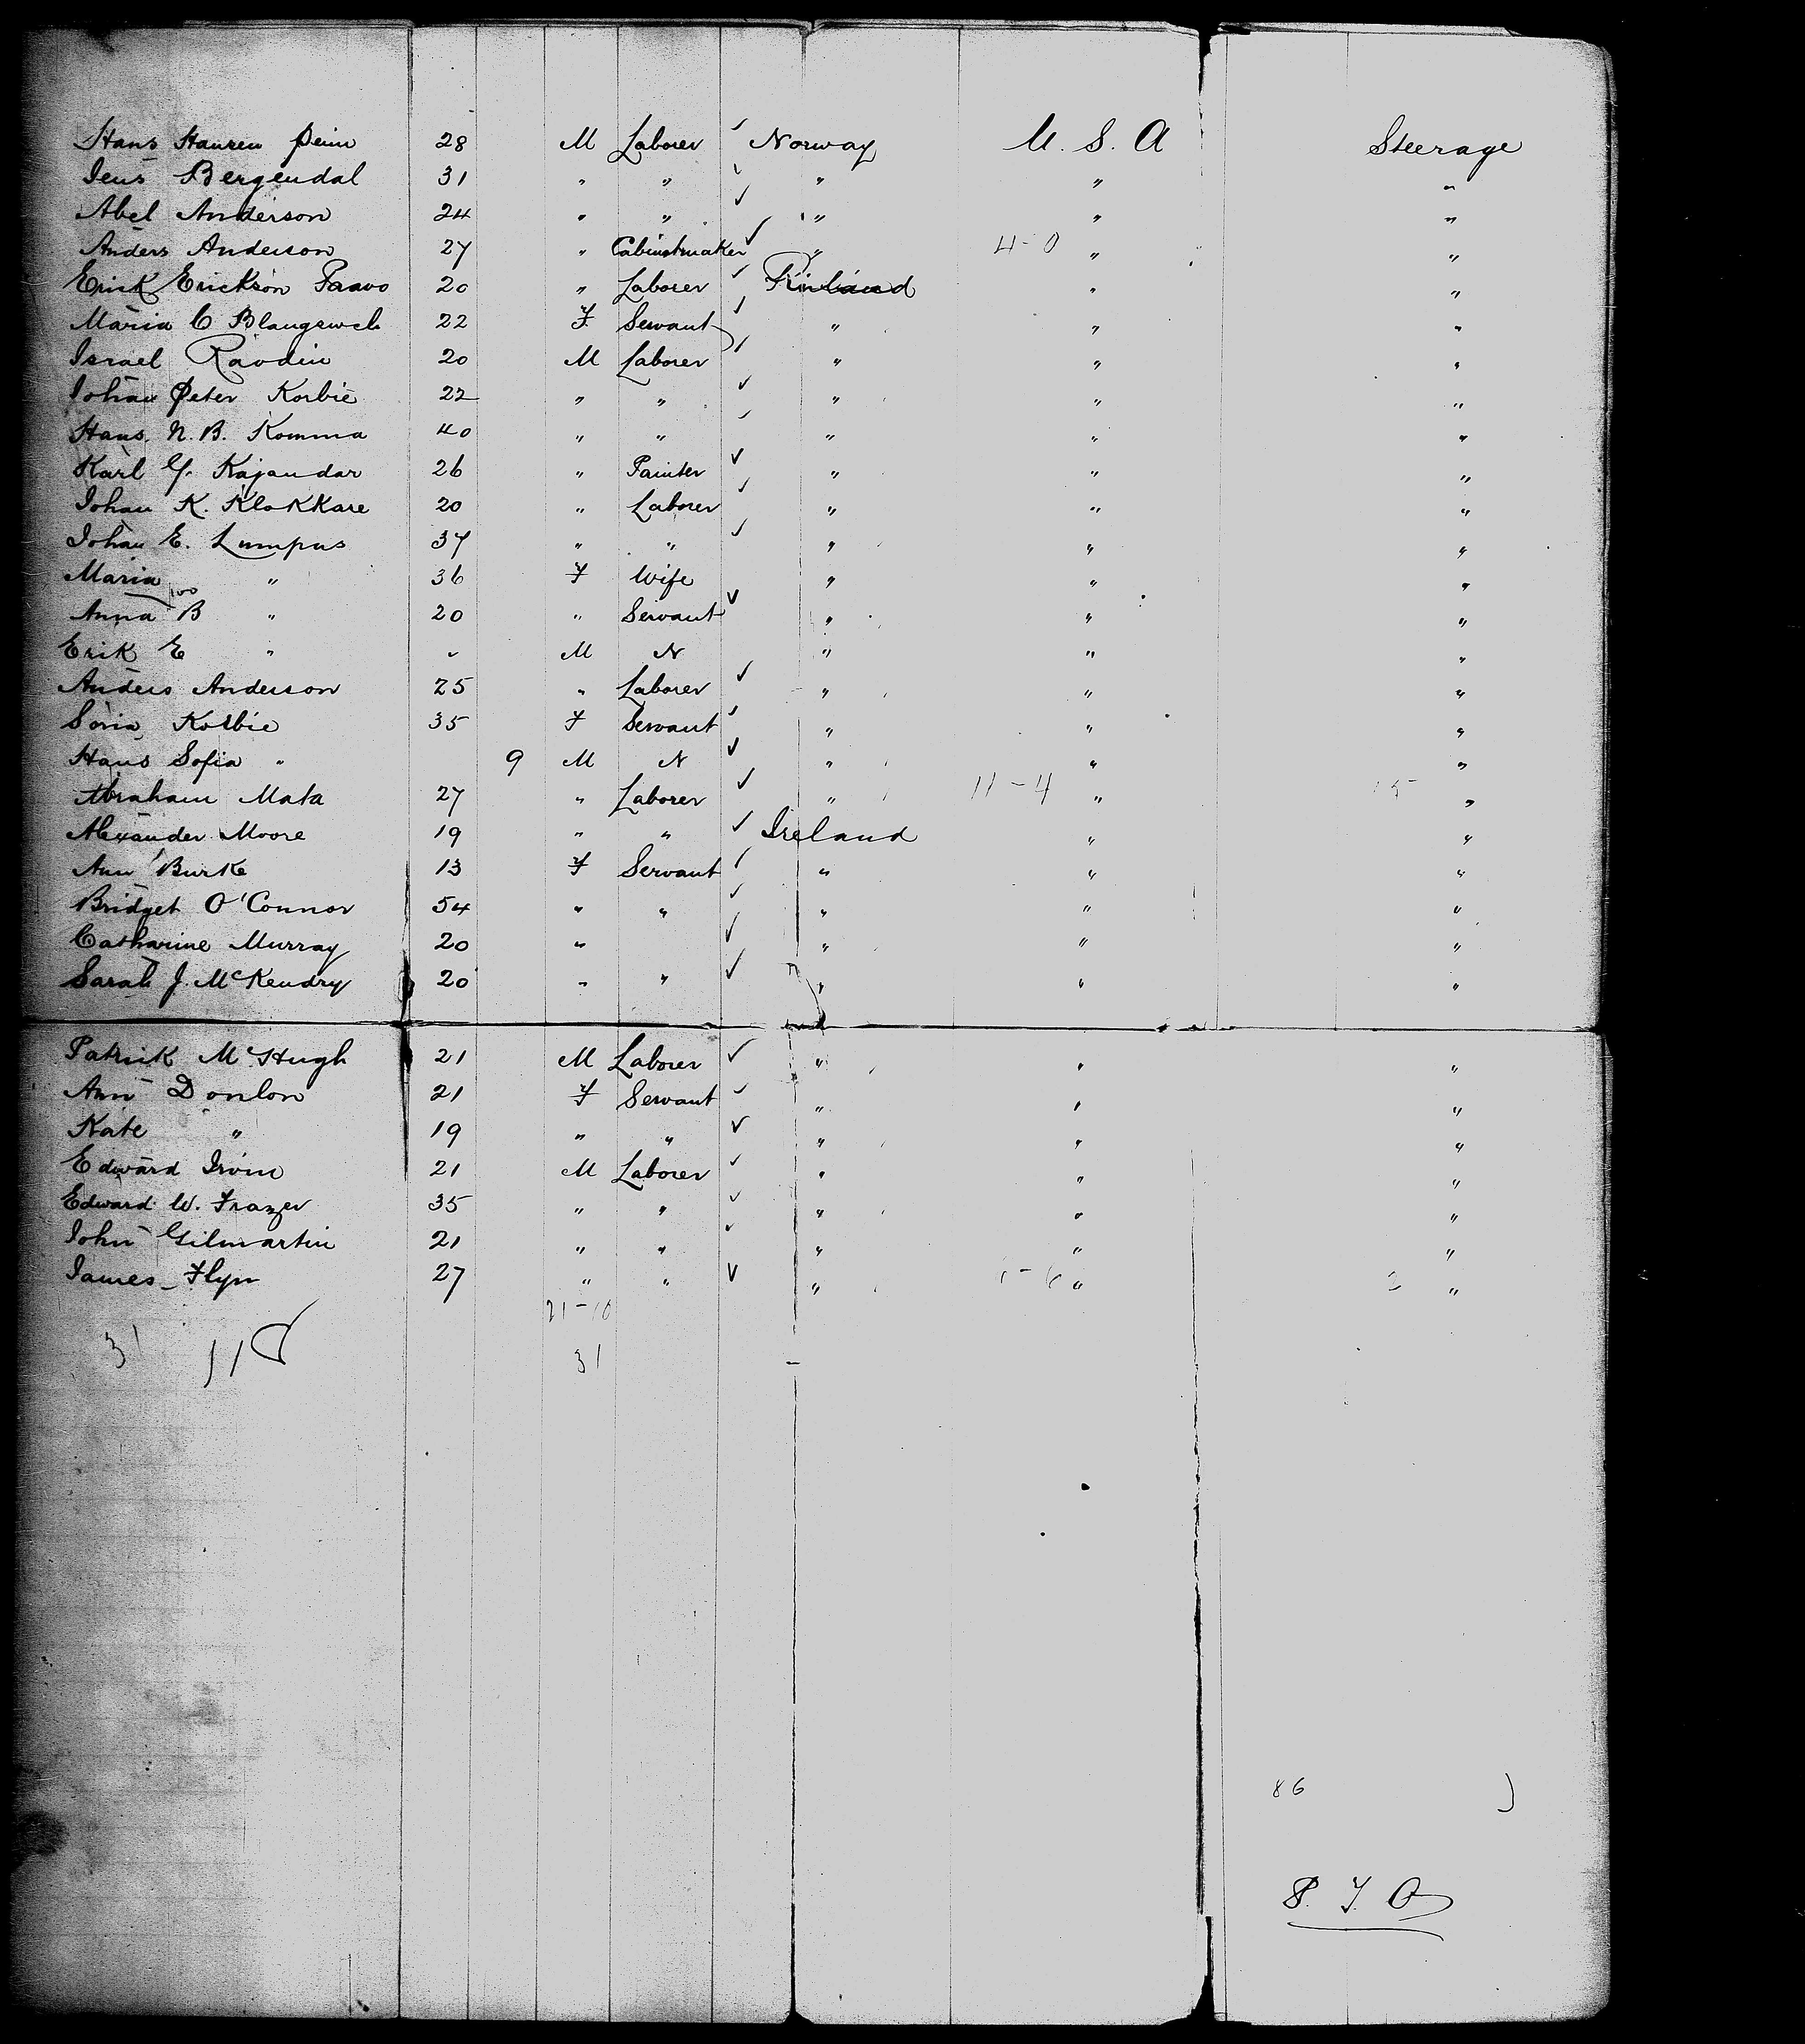 Hans Hansen 28 M Laborer ✓ Norway U. S. A Steerage
Jens Bergendal 31 " " ✓ " " "
Abel Anderson 24 " " ✓ " " "
Anders Anderson 27 " Cabinetmaker ✓ " 4-0 " "
Erick Erickson Paavo 20 " Laborer ✓ Finland " "
Maria C 22 F Servant ✓ " " "
Israel Ravdin 20 M Laborer ✓ " " "
Johan Peter Korbie 22 " " ✓ " " "
Hans N. B. Komma 40 " " ✓ " " "
Karl G. Kajandar 26 " Painter ✓ " " "
Johan K. Klokkare 20 " Laborer ✓ " " "
Johan E. Lumpus 37 " " ✓ " " "
Maria " 36 F Wife " " "
Anna B " 20 " Servant ✓ " " "
Erik E " " M N " " "
Anders Anderson 25 " Laborer ✓ " " "
Korbie 35 F Servant ✓ " " "
Hans Sofia " 9 M N ✓ " " "
Abraham Mata 27 " Laborer ✓ " 11-4 " 15 "
Alexander Moore 19 " " ✓ Ireland " "
Ann Burke 13 F Servant ✓ " " "
Bridget O'Connor 54 " " ✓ " " "
Catharine Murray 20 " ✓ " " "
Sarah J. McKendry 20 " " ✓ " " "
Patrick McHugh 21 M Laborer ✓ " " "
Ann Donlon 21 F Servant ✓ " " "
Kate " 19 " " ✓ " " "
Edward Irvin 21 M Laborer ✓ " " "
Edward W. Frazer 35 " " ✓ " " "
John Gilmartin 21 " " ✓ " " "
James Flyn 27 " " ✓ " " "
21-10
31 31
86
P. T. O